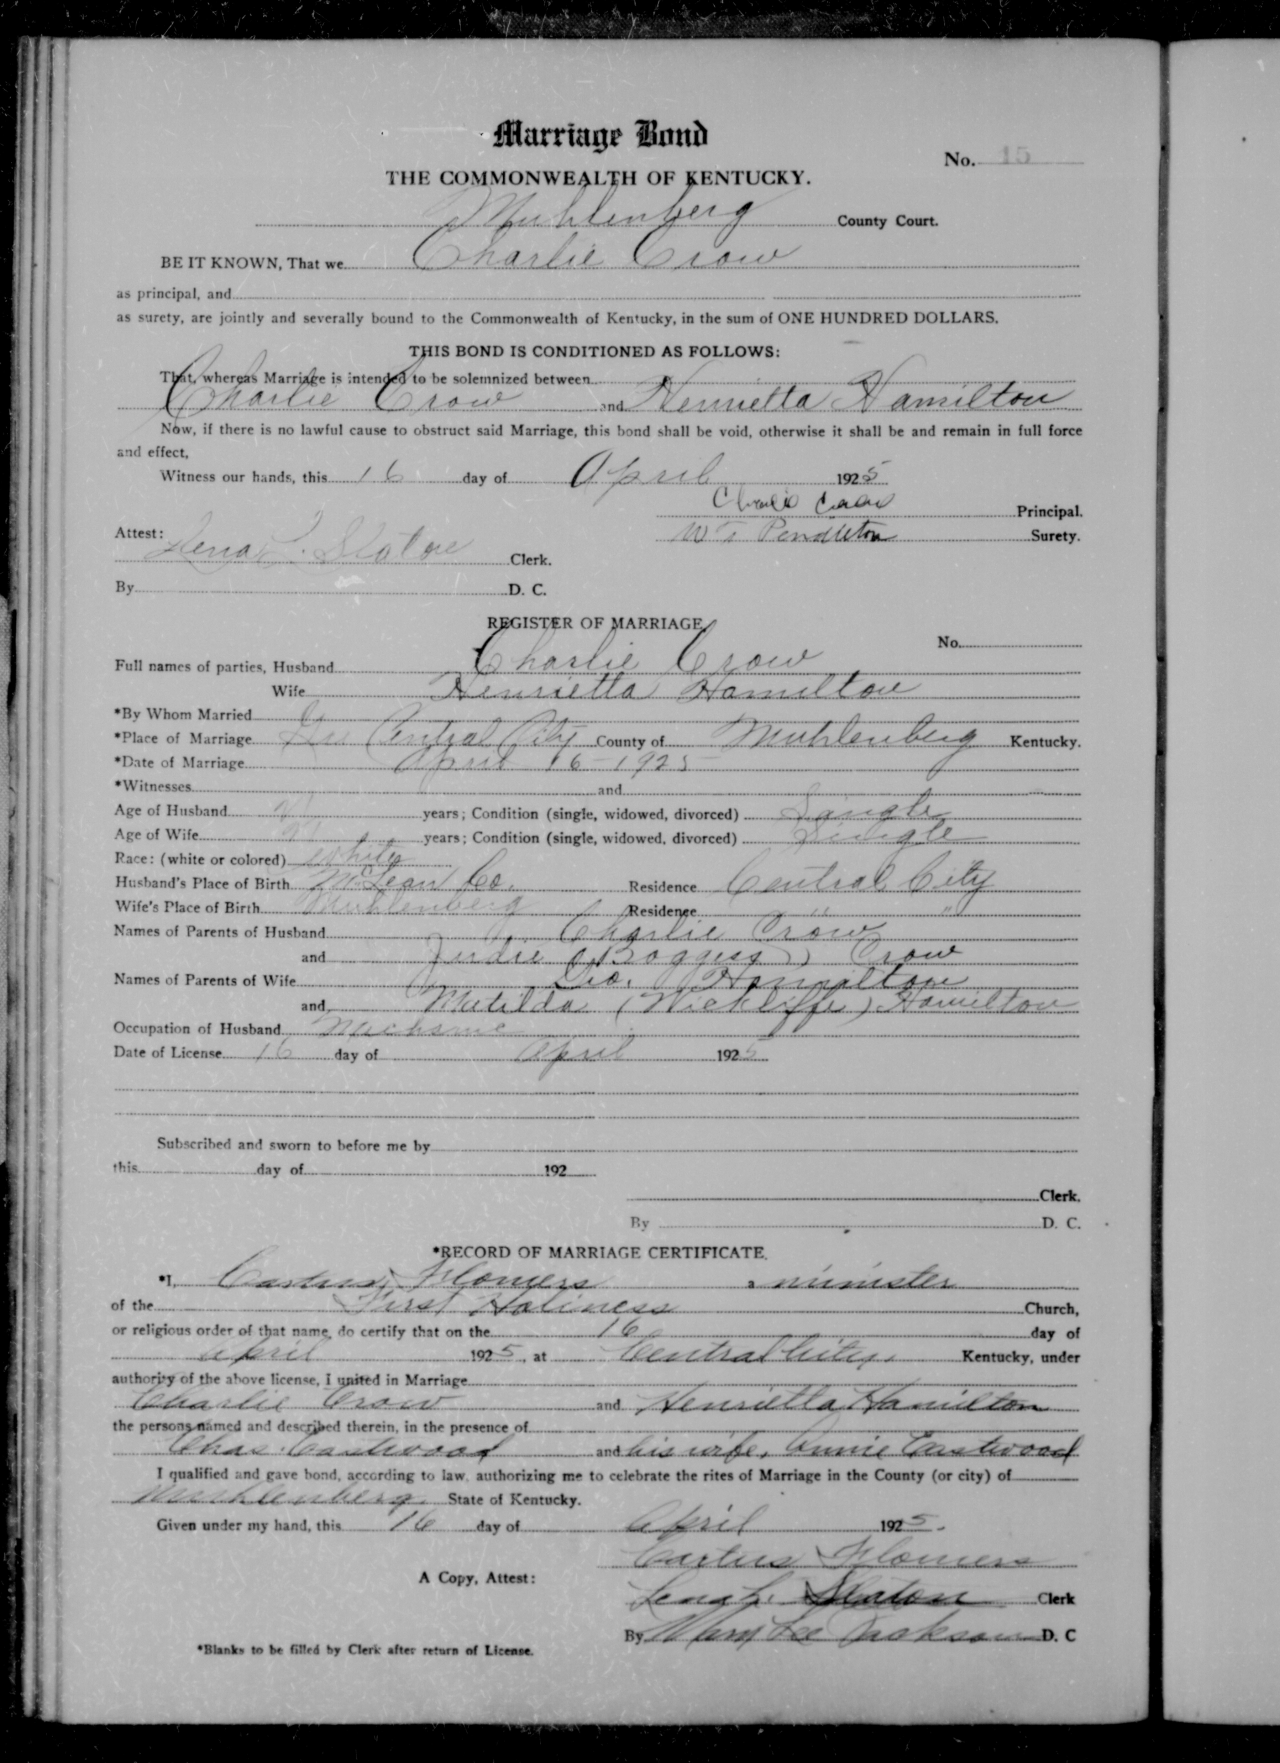 Marriage Bond
No. 15
THE COMMONWEALTH OF KENTUCKY.
Muhlenberg County Court.
BE IT KNOWN, That we Charlie Crow
as principal, and
as surety, are jointly and severally bound to the Commonwealth of Kentucky, in the sum of ONE HUNDRED DOLLARS.
THIS BOND IS CONDITIONED AS FOLLOWS:
That, whereas Marriage is intended to be solemnized between
Charlie Crow and Henrietta Hamilton
Now, if there is no lawful cause to obstruct said Marriage, this bond shall be void, otherwise it shall be and remain in full force
and effect,
Witness our hands, this 16 day of April 1925
Charlie Crow Principal.
Attest: W T Pendleton Surety.
Lena L. Slaton Clerk.
By D. C.
REGISTER OF MARRIAGE
No.
Full names of parties, Husband Charlie Crow
Wife Henrietta Hamilton
*By Whom Married
*Place of Marriage In Central City County of Muhlenberg Kentucky.
*Date of Marriage April 16-1925
*Witnesses and
Age of Husband years; Condition (single, widowed, divorced) Single
Age of Wife years; Condition (single, widowed, divorced) Single
Race: (white or colored) white
Husband's Place of Birth McLean Co. Residence Central City
Wife's Place of Birth Muhlenberg Residence " "
Names of Parents of Husband Charlie Crow
and (Boggess) Crow
Names of Parents of Wife Geo. Hamilton
and Matilda (Wickliffe) Hamilton
Occupation of Husband
Date of License 16 day of April 1925
Subscribed and sworn to before me by
this day of 192
Clerk.
By D. C.
*RECORD OF MARRIAGE CERTIFICATE.
*I, Flowers a minister
of the First Holiness Church,
or religious order of that name, do certify that on the 16 day of
April 1925, at Central City, Kentucky, under
authority of the above license, I united in Marriage
Charlie Crow and Henrietta Hamilton
the persons named and described therein, in the presence of
Chas. Eastwood and his wife, Annie Eastwood
I qualified and gave bond, according to law, authorizing me to celebrate the rites of Marriage in the County (or city) of
Muhlenberg, State of Kentucky.
Given under my hand, this 16 day of April 1925.
Flowers
A Copy, Attest: Lena L. Slaton Clerk
By Mary Lee Jackson D. C
*Blanks to be filled by Clerk after return of License.